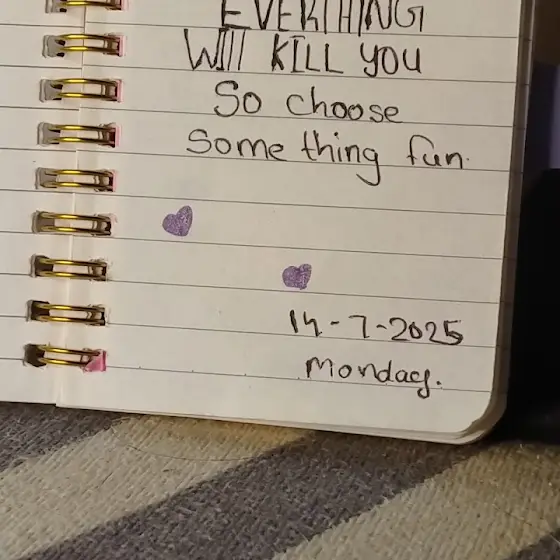 EVERTHING
WILL KILL YOU
So choose
Some thing fun.
14-7-2025
Monday.